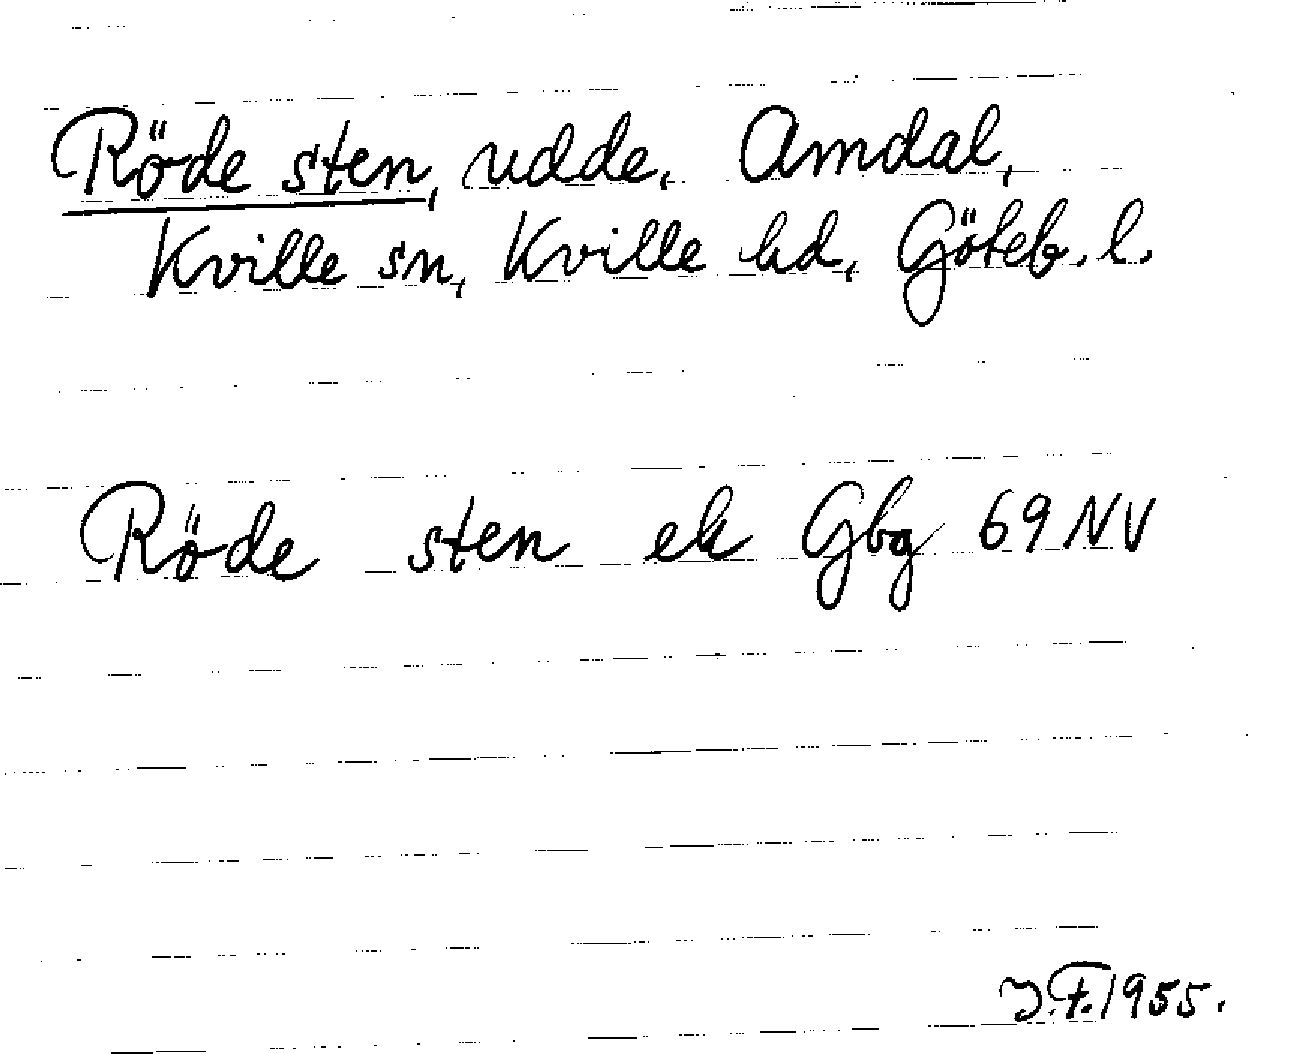 Röde sten, udde, Amdal,
Kville sn, Kville hd, Göteb. l.
Röde sten ek Gbg 69 NV
J.F. 1955.